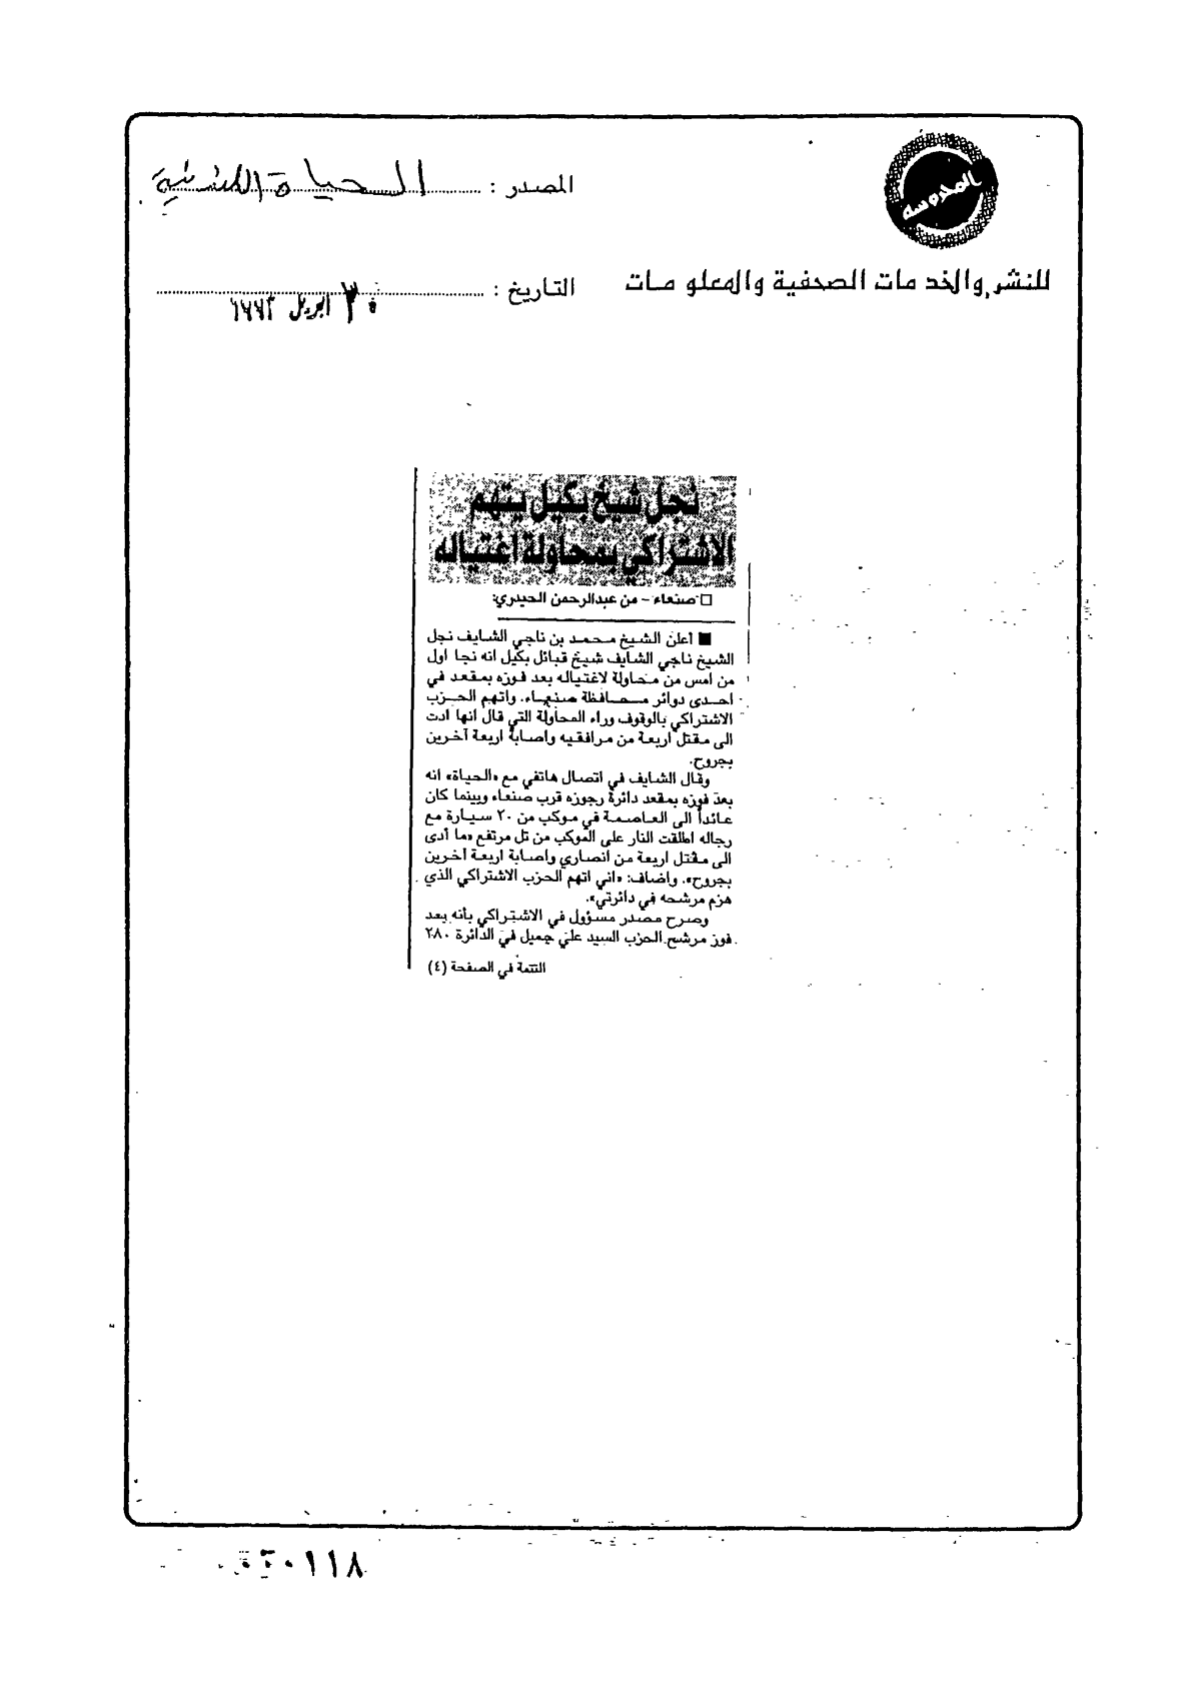 المحروسة
المصدر : الحياة اللندنية
للنشر والخدمات الصحفية والمعلومات
التاريخ : ٣٠ ابريل ١٩٩٣
نجل شيخ بكيل يتهم
الاشتراكي بمحاولة اغتياله
□ صنعاء - من عبدالرحمن الحيدري:
■ أعلن الشيخ محمد بن ناجي الشايف نجل
الشيخ ناجي الشايف شيخ قبائل بكيل انه نجا اول
من امس من محاولة لاغتياله بعد فوزه بمقعد في
احدى دوائر محافظة صنعاء. واتهم الحزب
الاشتراكي بالوقوف وراء المحاولة التي قال انها ادت
الى مقتل اربعة من مرافقيه واصابة اربعة آخرين
بجروح.
وقال الشايف في اتصال هاتفي مع «الحياة» انه
بعد فوزه بمقعد دائرة رجوزه قرب صنعاء وبينما كان
عائداً الى العاصمة في موكب من ٢٠ سيارة مع
رجاله اطلقت النار على الموكب من تل مرتفع «ما أدى
الى مقتل اربعة من انصاري واصابة اربعة آخرين
بجروح». واضاف: «اني اتهم الحزب الاشتراكي الذي
هزم مرشحه في دائرتي».
وصرح مصدر مسؤول في الاشتراكي بأنه بعد
فوز مرشح الحزب السيد علي جميل في الدائرة ٢٨٠
التتمة في الصفحة (٤)